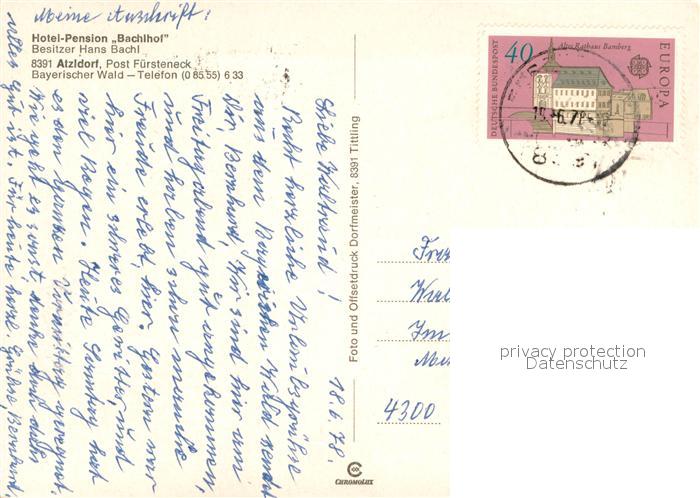 Meine Anschrift:
Hotel-Pension „Bachlhof"
Besitzer Hans Bachl
8391 Atzldorf, Post Fürsteneck
Bayerischer Wald — Telefon (0 85 55) 6 33
18.6.78.
Liebe Waltraud!
Recht herzliche Urlaubsgrüße
aus dem Bayrischen Wald sendet
Dir, Bernhard. Wir sind hier am
Freitagabend gut angekommen,
und haben schon manche
Freude erlebt, hier. Gestern war
hier ein schweres Gewitter, und
viel Regen. Heute Sonntag hat
es den ganzen Vormittag geregnet.
Wie geht es sonst, denke daß
alles gut ist. Für heute herzl. Grüße, Bernhard.
Foto und Offsetdruck Dorfmeister, 8391 Tittling
CHROMOLUX
DEUTSCHE BUNDESPOST
40
Altes Rathaus Bamberg
EUROPA
CEPT
4300
privacy protection
Datenschutz